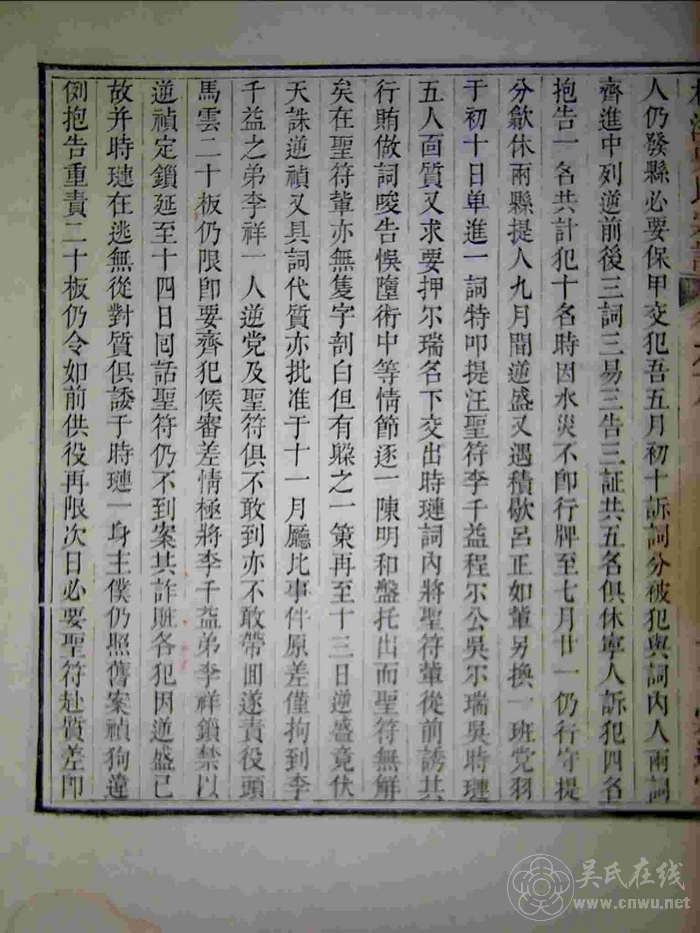 人仍發縣必要保甲交犯吾五月初十訴詞分被犯與詞內人兩詞
齊進中列逆前後三詞三易三告三証共五名俱休寧人訴犯四名
抱告一名共計犯十名時因水災不卽行牌至七月廿一仍行守提
分歙休兩縣提人九月間逆盛又遇積歇呂正如輩另換一班党羽
于初十日单進一詞特叩提汪聖符李千益程尔公吳尔瑞吳時璉
五人面質又求要押尔瑞名下交出時璉詞內將聖符輩從前誘其
行賄做詞唆告悞墮術中等情節逐一陳明和盤托出而聖符無解
矣在聖符輩亦無隻字剖白但有躱之一策再至十三日逆盛竟伏
天誅逆禎又具詞代質亦批准于十一月廳比事件原差僅拘到李
千益之弟李祥一人逆党及聖符俱不敢到亦不敢帶回遂責役頭
馬雲二十板仍限卽要齊犯候審差情極將李千益弟李祥鎖禁以
逆禎定鎖延至十四日回話聖符仍不到案其詐賍各犯因逆盛已
故并時璉在逃無從對質俱諉于時璉一身主僕仍照舊案禎狥違
例抱告重責二十板仍令如前供役再限次日必要聖符赴質差卽
吴氏在线
www.cnwu.net